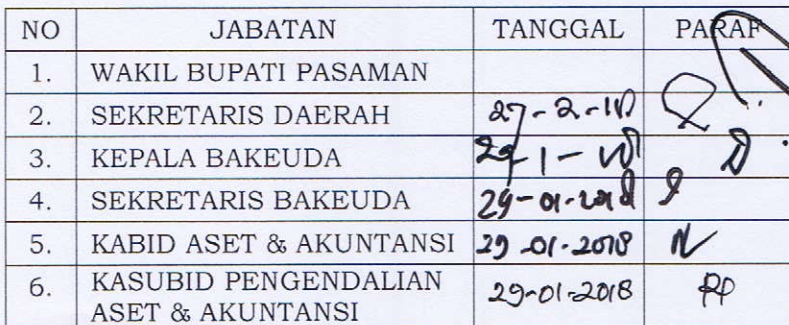 NO JABATAN TANGGAL PARAF
1. WAKIL BUPATI PASAMAN
2. SEKRETARIS DAERAH 27-2-18
3. KEPALA BAKEUDA 29-1-18
4. SEKRETARIS BAKEUDA 29-01-2018
5. KABID ASET & AKUNTANSI 29-01-2018
6. KASUBID PENGENDALIAN 29-01-2018
ASET & AKUNTANSI